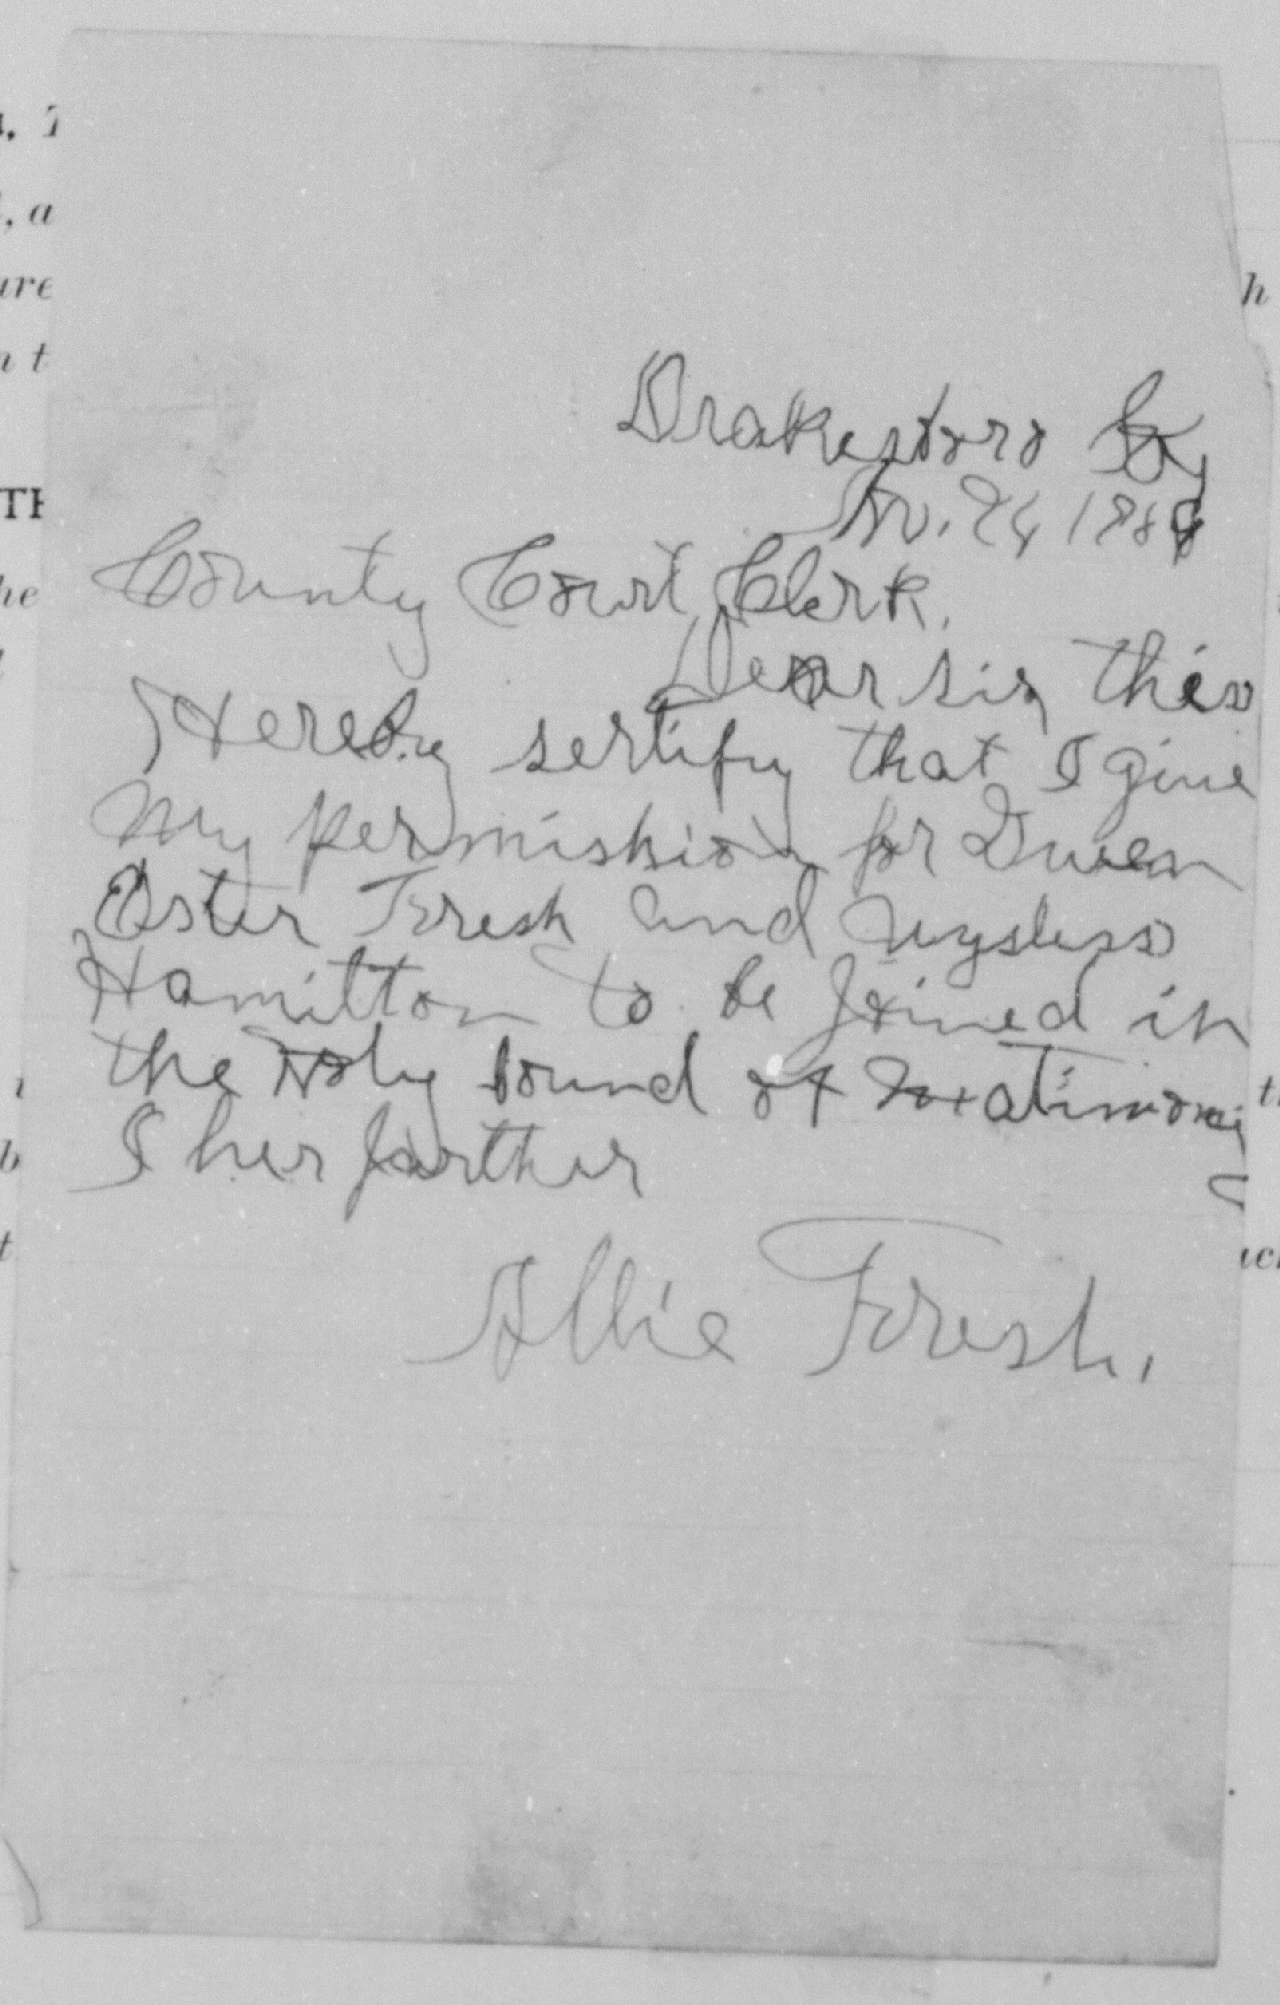 Drakesboro Ky
Nov. 24 1889
County Court Clerk.
Dear sir, this
Hereby sertify that I give
My permishion for
Ester Foresh and Uysless
Hamilton to be joined in
the Holy bound of Matimony
I her farther
Allie Foresh.